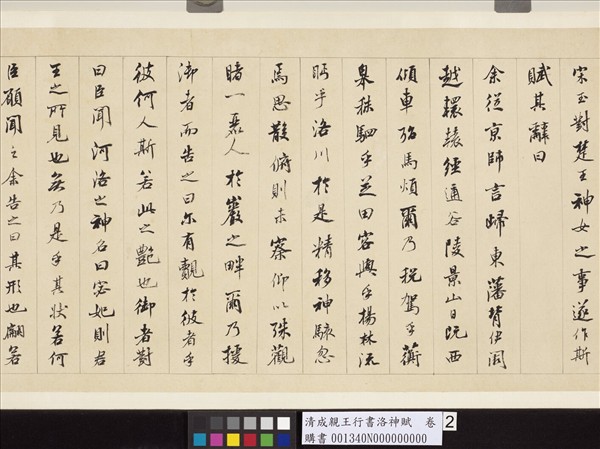 宋玉對楚王神女之事遂作斯
賦其辭曰
余從京師言歸東藩背伊闕
越轘轅經通谷陵景山日既西
傾車殆馬煩爾乃稅駕乎蘅
皋秣駟乎芝田容與乎楊林流
眄乎洛川於是精移神駭忽
焉思散俯則未察仰以殊觀
睹一麗人於巖之畔爾乃援
御者而告之曰尔有覿於彼者乎
彼何人斯若此之艷也御者對
曰臣聞河洛之神名曰宓妃則君
王之所見也無乃是乎其狀若何
臣願聞之余告之曰其形也翩若
清成親王行書洛神賦 卷 2
購書 001340N000000000